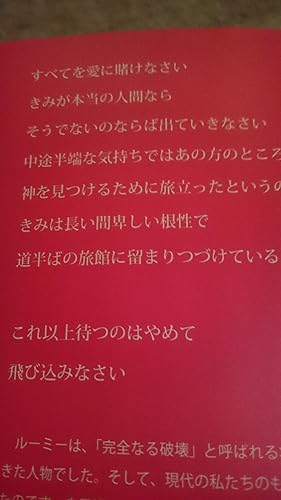 すべてを愛に賭けなさい
きみが本当の人間なら
そうでないのならば出ていきなさい
中途半端な気持ちではあの方のところ
神を見つけるために旅立ったというの
きみは長い間卑しい根性で
道半ばの旅館に留まりつづけている
これ以上待つのはやめて
飛び込みなさい
ルーミーは、「完全なる破壊」と呼ばれる
きた人物でした。そして、現代の私たちのも